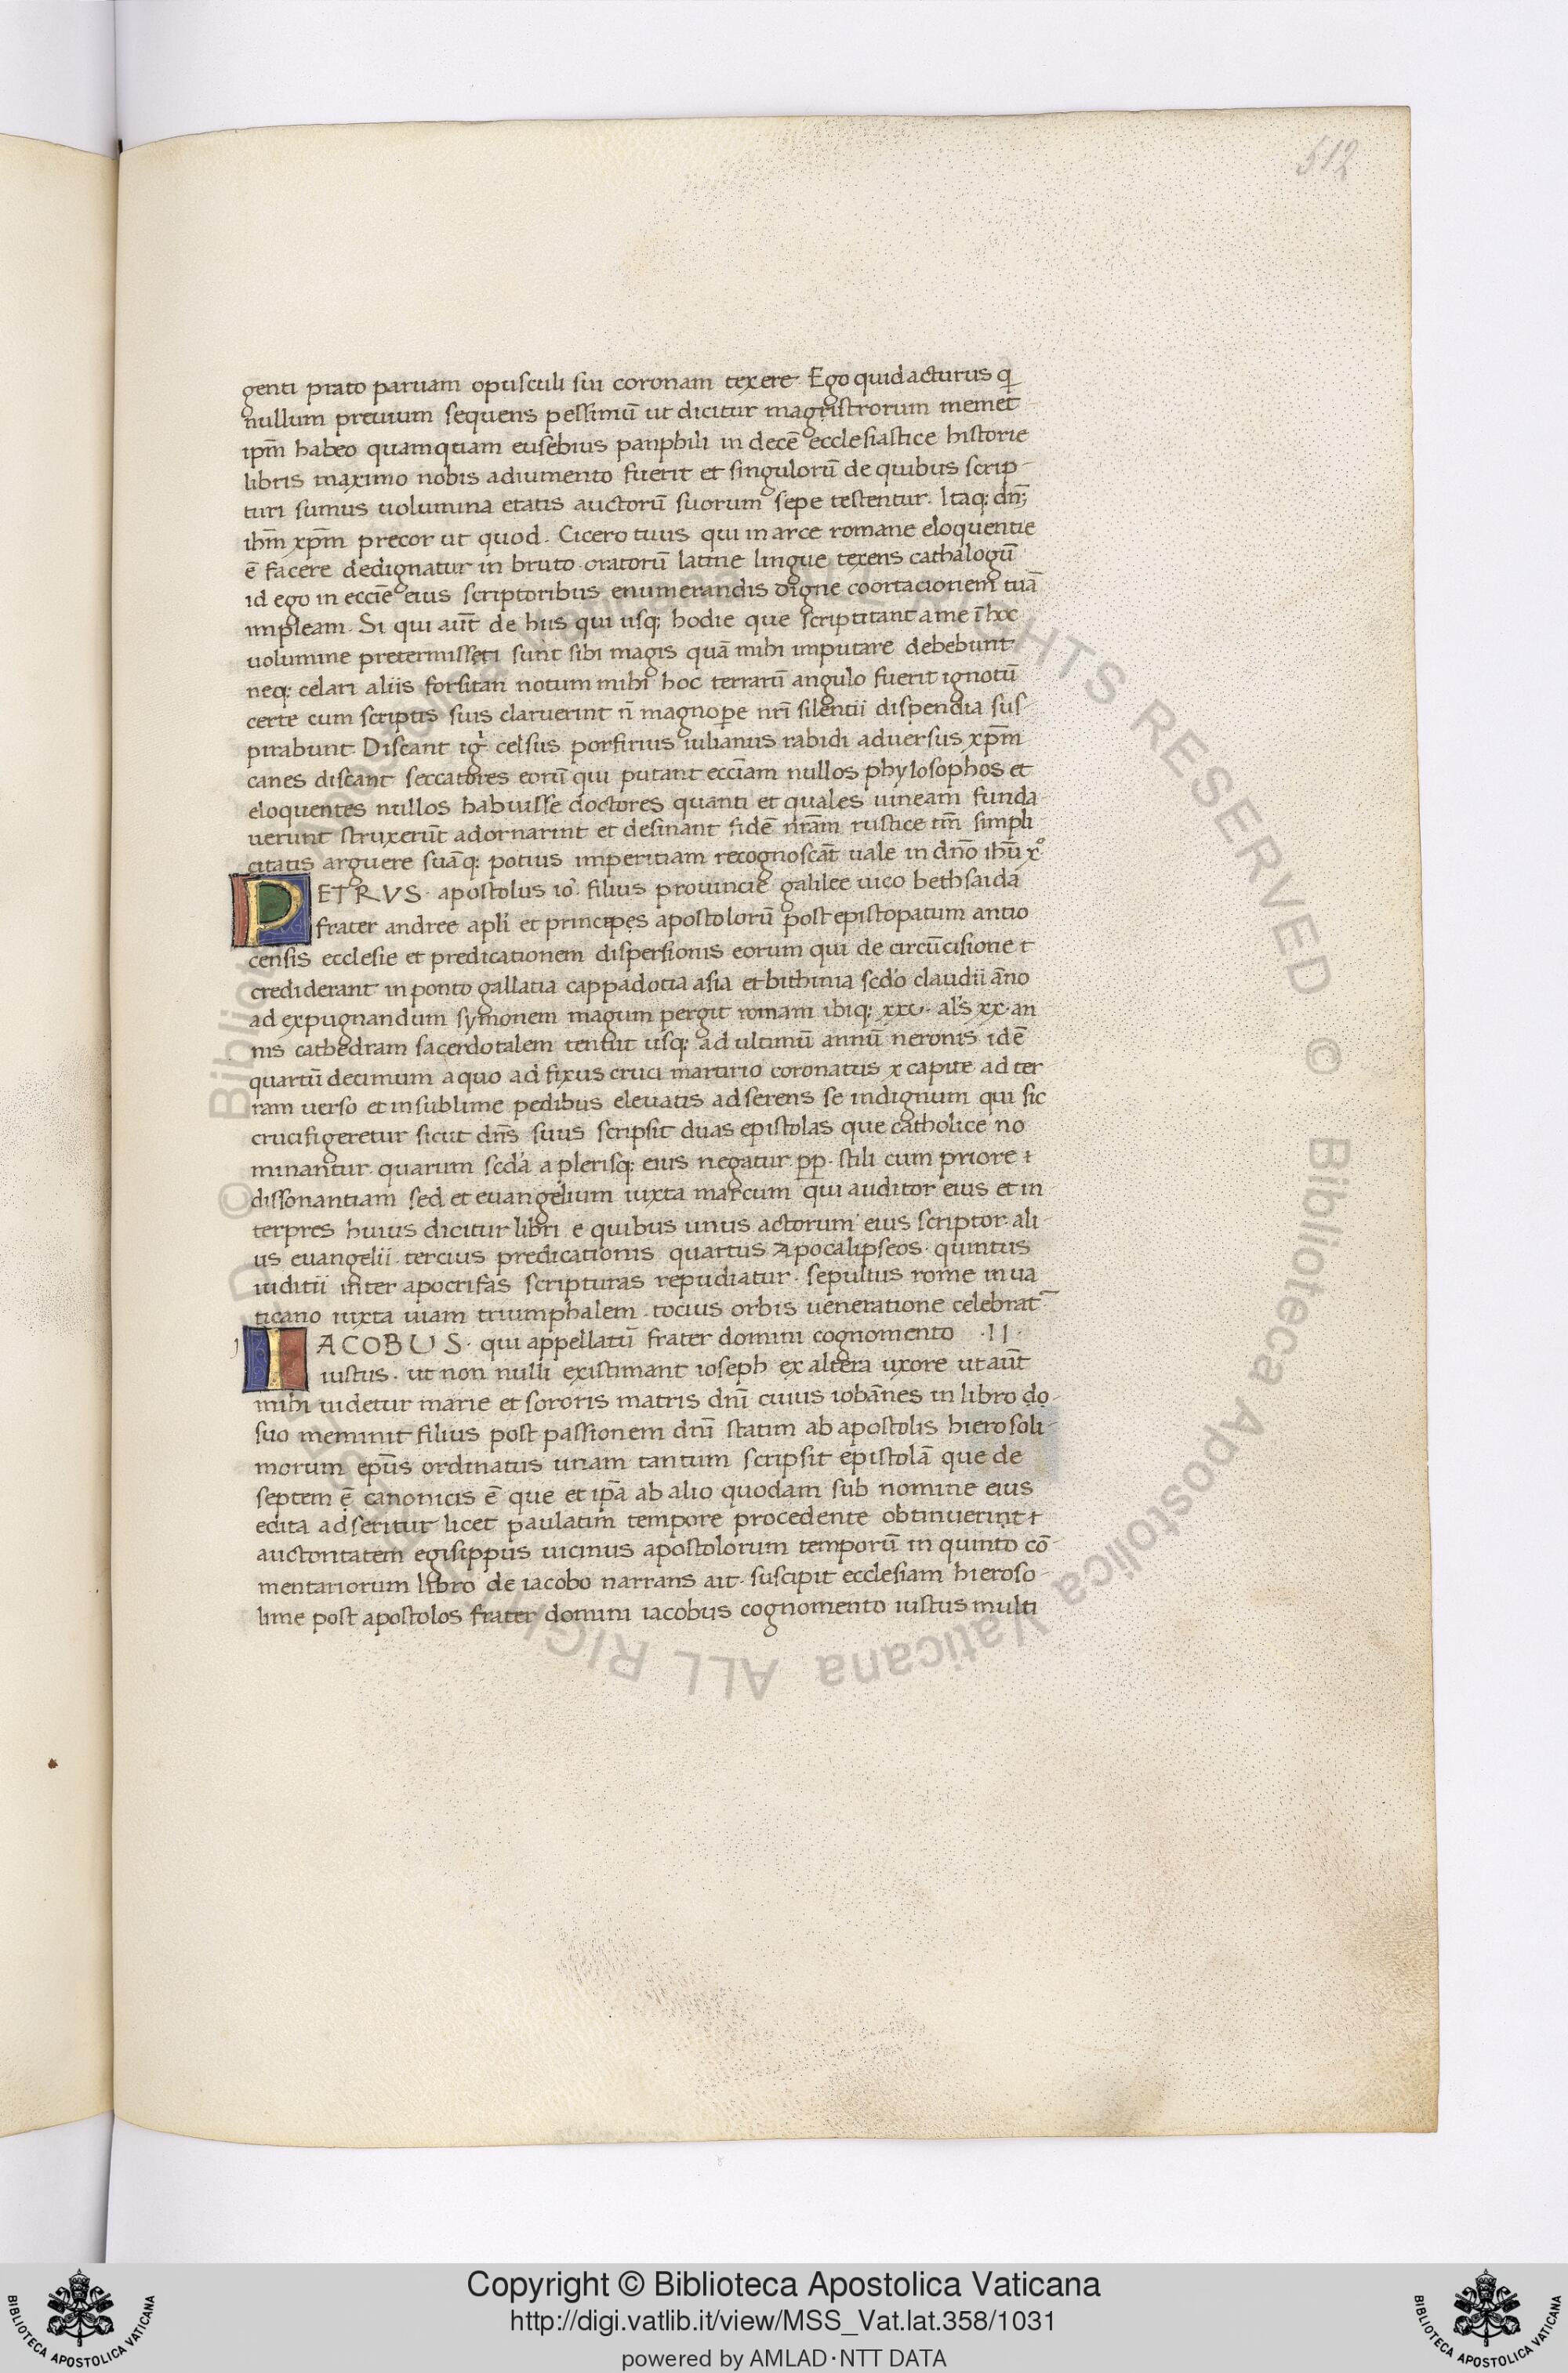 512
genti prato paruam opusculi sui coronam texere. Ego quid acturus q̄
nullum preuium sequens pessimū ut dicitur magistrorum memet
ipm̄ habeo quamquam eusebius panphili in decē ecclesiastice historie
libris maximo nobis adiumento fuerit et singulorū de quibus scrip-
turi sumus uolumina etatis auctorū suorum sepe testentur. Itaq; dn̄;
ihm̄ xpm̄ precor ut quod. Cicero tuus qui in arce romane eloquentie
ē facere dedignatur in bruto oratorū latine lingue texens cathalogū
id ego in eccīe eius scriptoribus enumerandis digne coortacionem tuā
impleam. Si qui aūt de hiis qui usq; hodie que scriptitant a me ī hoc
uolumine pretermisseti sunt sibi magis quā mihi imputare debebunt
neq; celari aliis forsitan notum mihi hoc terrarū angulo fuerit ignotū
certe cum scriptis suis claruerint n̄ magnope nr̄i silentii dispendia sus-
pirabunt. Discant igr̄ celsus porfirius iulianus rabidi aduersus xpm̄
canes discant seccatores eorū qui putant eccīam nullos phylosophos et
eloquentes nullos habuisse doctores quanti et quales uineam funda-
uerunt struxerūt adornarint et desinant fidē nr̄am rustice tm̄ simpli
citatis arguere suāq; potius imperitiam recognoscāt uale in dn̄o ihū xº
PETRVS. apostolus io. filius prouincie galilee uico bethsaida
frater andree apl̄i et princepes apostolorū post epistopatum antio
censis ecclesie et predicationem dispersionis eorum qui de circūcisione t
crediderant in ponto gallatia cappadotia asia et bithinia scd̄o claudii āno
ad expugnandum symonem magum pergit romam ibiq; xxv. al's xx. an
nis cathedram sacerdotalem tenuit usq; ad ultimū annū neronis idē
quartū decimum a quo ad fixus cruci martirio coronatus x capite ad ter
ram uerso et in sublime pedibus eleuatis adserens se indignum qui sic
crucifigeretur sicut dn̄s suus scripsit duas epistolas que catholice no
minantur. quarum scd̄a a plerisq; eius negatur. pp. stili cum priore t
dissonantiam sed et euangelium iuxta marcum qui auditor eius et in
terpres huius dicitur libri e quibus unus actorum eius scriptor. ali-
us euangelii. tercius predicationis quartus Apocalipseos. quintus
iuditii inter apocrifas scripturas repudiatur. sepultus rome in ua
ticano iuxta uiam triumphalem. tocius orbis ueneratione celebrat̄
IACOBUS. qui appellatū frater domini cognomento .II.
iustus. ut non nulli existimant ioseph ex altera uxore ut aūt
mihi uidetur marie et sororis matris dn̄i cuius iohānes in libro do-
suo meminit filius post passionem dn̄i statim ab apostolis hierosoli-
morum ep̄us ordinatus unam tantum scripsit epistolā que de
septem ē canonicis ē que et ip̄a ab alio quodam sub nomine eius
edita adseritur licet paulatim tempore procedente obtinuerint t
auctoritatem egisippus uicinus apostolorum temporū in quinto cō-
mentariorum libro de iacobo narrans ait. suscipit ecclesiam hieroso-
lime post apostolos frater domini iacobus cognomento iustus multi
Copyright © Biblioteca Apostolica Vaticana
http://digi.vatlib.it/view/MSS_Vat.lat.358/1031
powered by AMLAD·NTT DATA
BIBLIOTECA APOSTOLICA VATICANA
BIBLIOTECA APOSTOLICA VATICANA
© Biblioteca Apostolica Vaticana ALL RIGHTS RESERVED